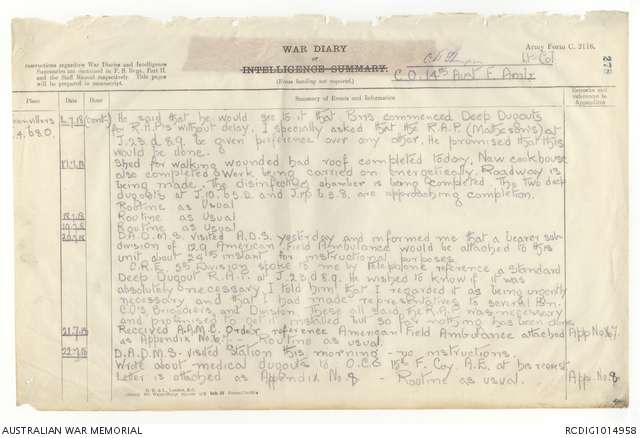 WAR DIARY
OR
INTELLIGENCE SUMMARY.
(Erase heading not required.)
Army Form C. 2118.
Instructions regarding War Diaries and Intelligence
Summaries are contained in F. S. Regs., Part II.
and the Staff Manual respectively. Title pages
will be prepared in manuscript.
Lt-Col
C.O. 14th Aust F. Amb
278
Place Date Hour Summary of Events and Information Remarks and references to Appendices
(cont) He said that he would see to it that Bns commenced Deep Dugouts
for R.A.P's without delay. I specially asked that the R.A.P. (Matheson's) at
J.23.d.8.9. be given preference over any other. He promised that this
would be done.
17.7.18 Shed for walking wounded had roof completed today, New cookhouse
also completed & work being carried on energetically. Roadway is
being made, the disinfecting chamber is being completed. The two deep
dugouts at are approaching completion.
Routine as Usual
18.7.18 Routine as Usual
19.7.18 Routine as Usual
20.7.18 D.A.D.M.S. visited A.D.S. yesterday and informed me that a bearer sub-
division of 129 American Field Ambulance would be attached to this
unit about 24th instant for instructional purposes.
C.R.E. 5th Division spoke to me by telephone reference a standard
Deep Dugout R.A.P. at J.23.d.8.9. He wished to know if it was
absolutely necessary. I told him that I regarded it as being urgently
necessary and that I had made representatives to several Bn.
C.O's, Brigadiers, and Division. These all said the R.A.P. was necessary
and promised but so far nothing has been done
21.7.18 Received A.A.M.C. Order reference American Field Ambulance attached App No. 7.
as Appendix No. Routine as usual.
22.7.18 D.A.D.M.S. visited Station this morning - no instructions.
Wrote about medical dugouts to O.C. 15th F. Coy. A.E. at his request
Letter is attached as Appendix No. 8 - Routine as usual. App No. 8
AUSTRALIAN WAR MEMORIAL
RCDIG1014958